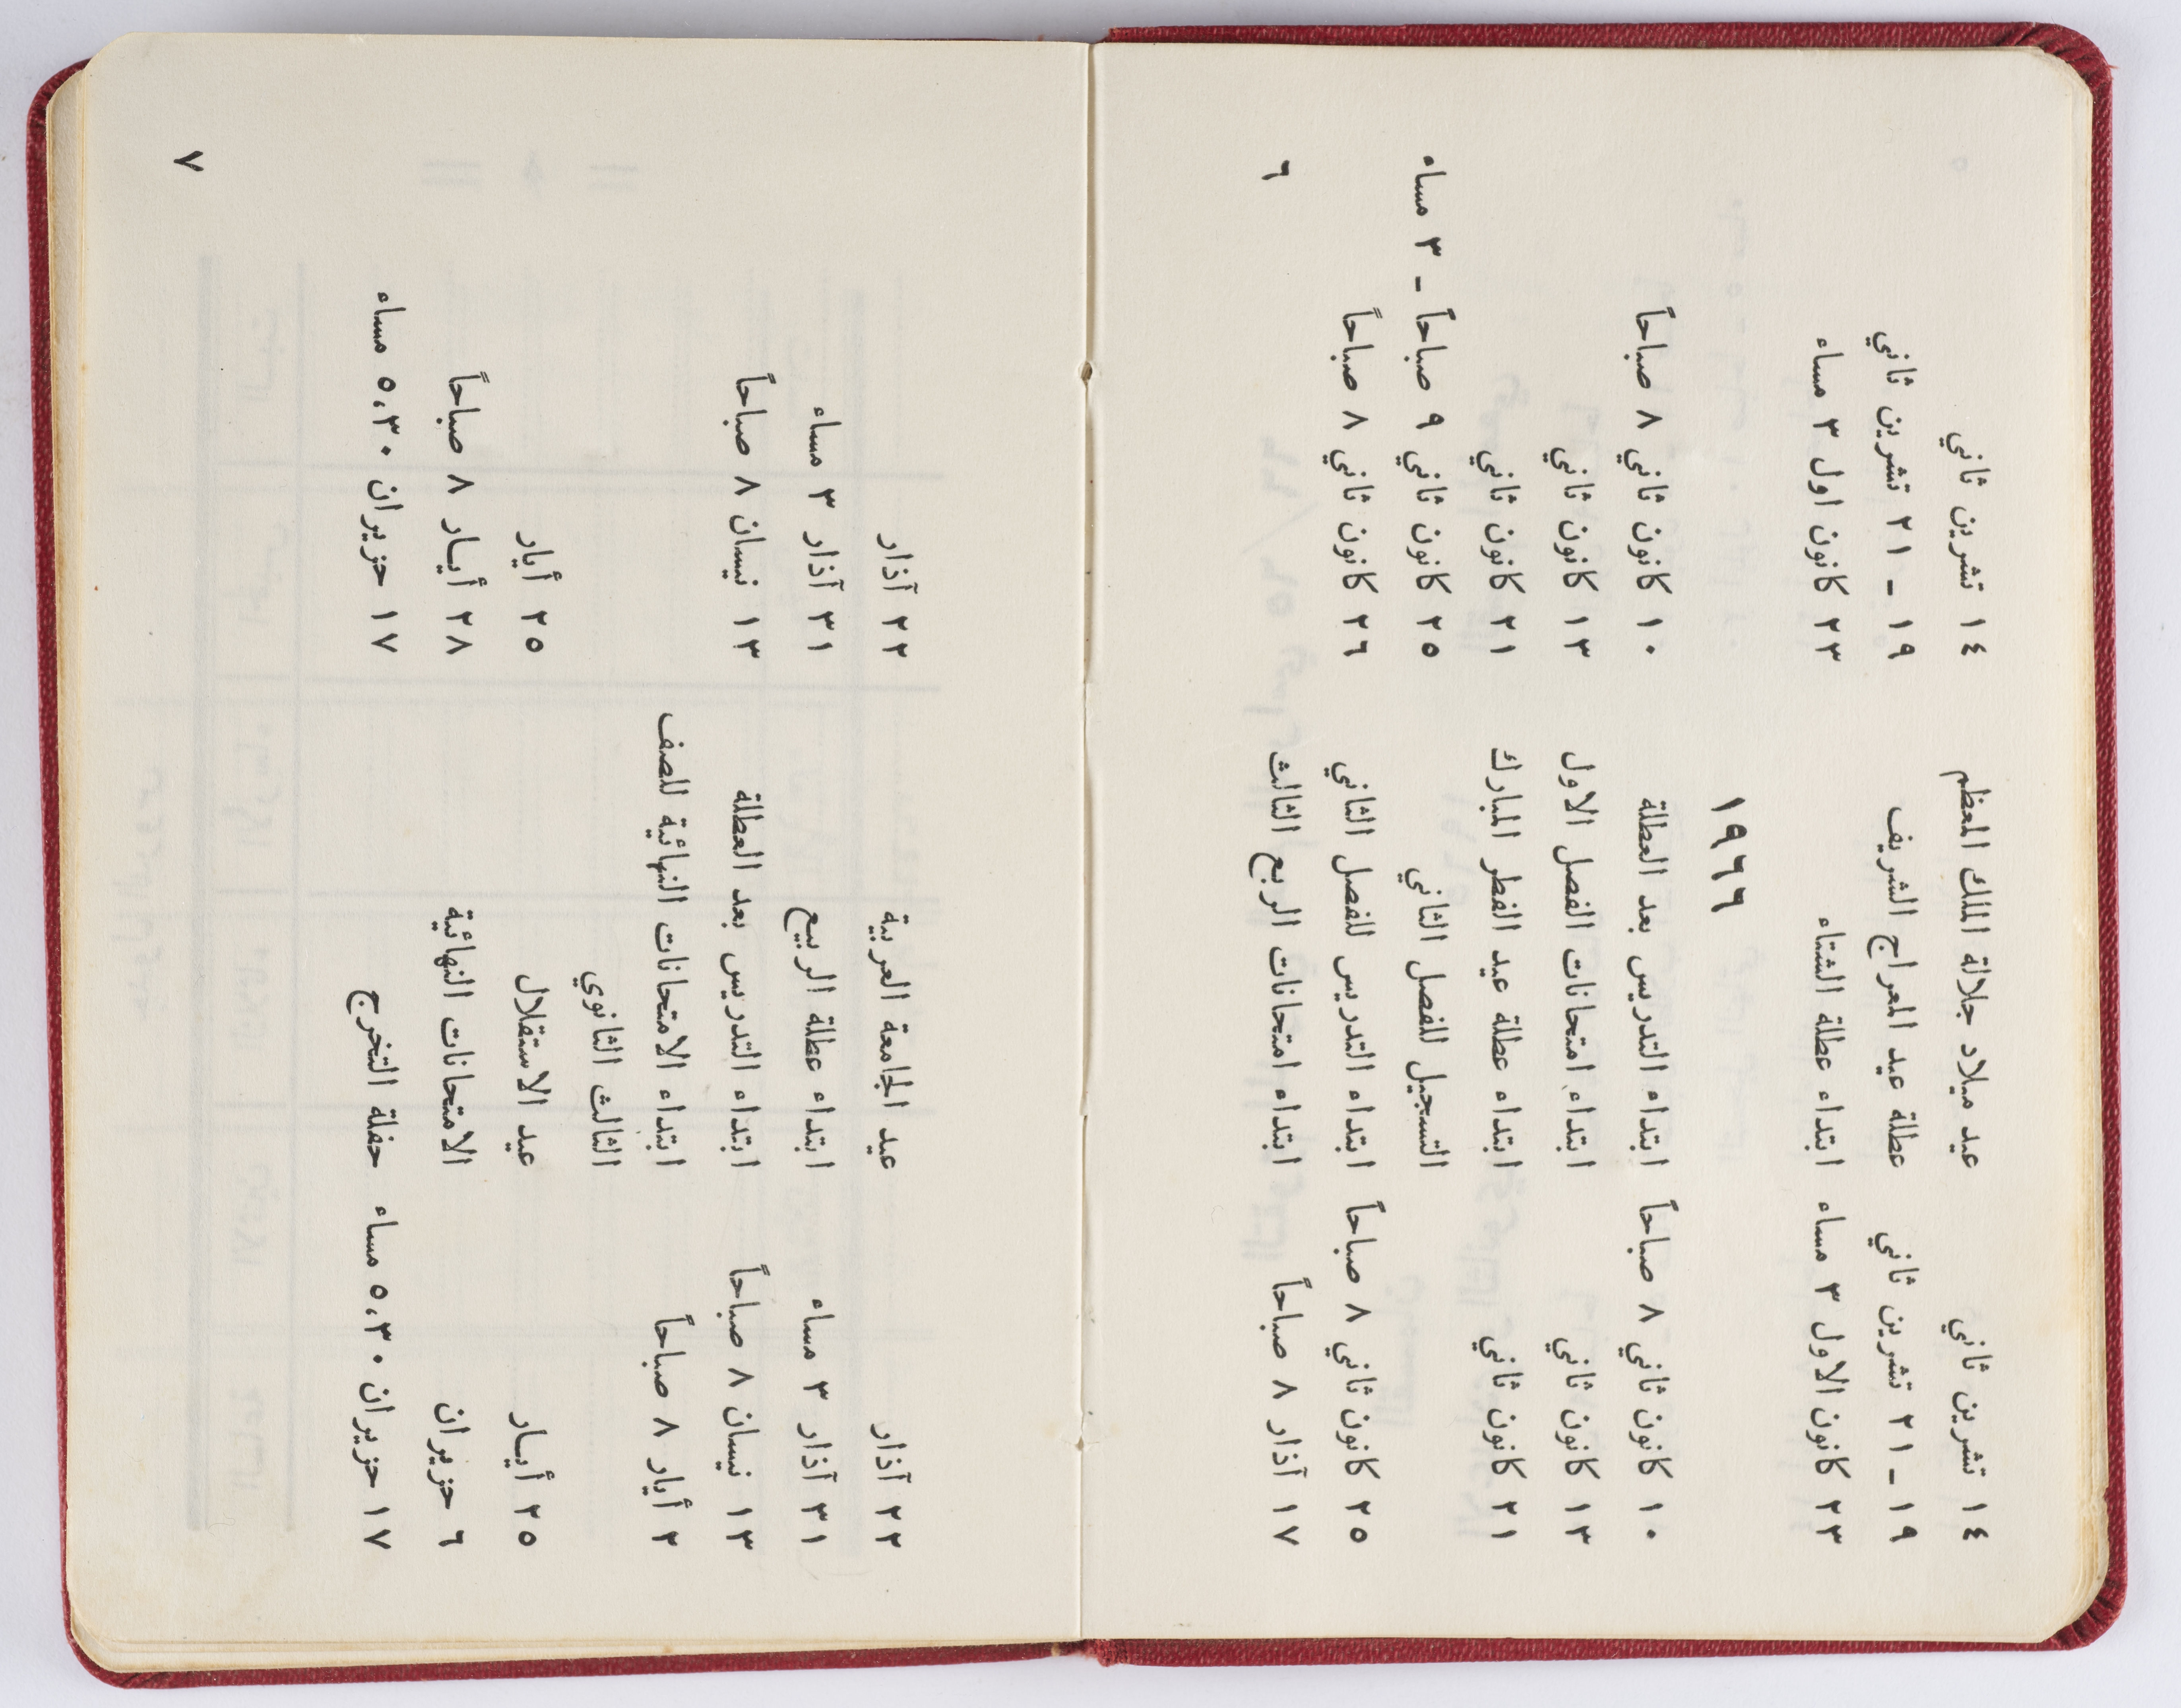 ١٤ تشرين ثاني عيد ميلاد جلالة الملك المعظم ١٤ تشرين ثاني
١٩ ـ ٢١ تشرين ثاني عطلة عيد المعراج الشريف ١٩ ـ ٢١ تشرين ثاني
٢٣ كانون الاول ٣ مساء ابتداء عطلة الشتاء ٢٣ كانون اول ٣ مساء
١٩٦٦
١٠ كانون ثاني ٨ صباحاً ابتداء التدريس بعد العطلة ١٠ كانون ثاني ٨ صباحاً
١٣ كانون ثاني ابتداء امتحانات الفصل الاول ١٣ كانون ثاني
٢١ كانون ثاني ابتداء عطلة عيد الفطر المبارك ٢١ كانون ثاني
التسجيل للفصل الثاني ٢٥ كانون ثاني ٩ صباحاً ـ ٣ مساء
٢٥ كانون ثاني ٨ صباحاً ابتداء التدريس للفصل الثاني ٢٦ كانون ثاني ٨ صباحاً
١٧ آذار ٨ صباحاً ابتداء امتحانات الربع الثالث
٦
٢٢ آذار عيد الجامعة العربية ٢٢ آذار
٣١ آذار ٣ مساء ابتداء عطلة الربيع ٣١ آذار ٣ مساء
١٣ نيسان ٨ صباحاً ابتداء التدريس بعد العطلة ١٣ نيسان ٨ صباحاً
٢ أيار ٨ صباحاً ابتداء الامتحانات النهائية للصف
الثالث الثانوي
٢٥ أيـار عيد الاستقلال ٢٥ أيار
٦ حزيران الامتحانات النهائية ٢٨ أيـار ٨ صباحاً
١٧ حزيران ٥،٣٠ مساء حفلة التخرج ١٧ حزيران ٥،٣٠ مساء
٧